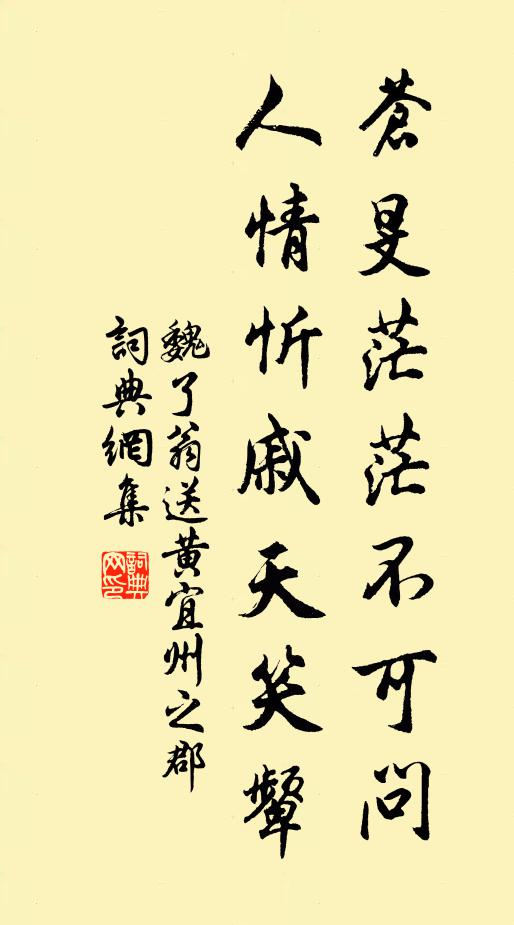 蒼旻茫茫不可問
人情忻戚天笑顰
魏了翁送黃宜州之郡
詞典網集
詞典网印